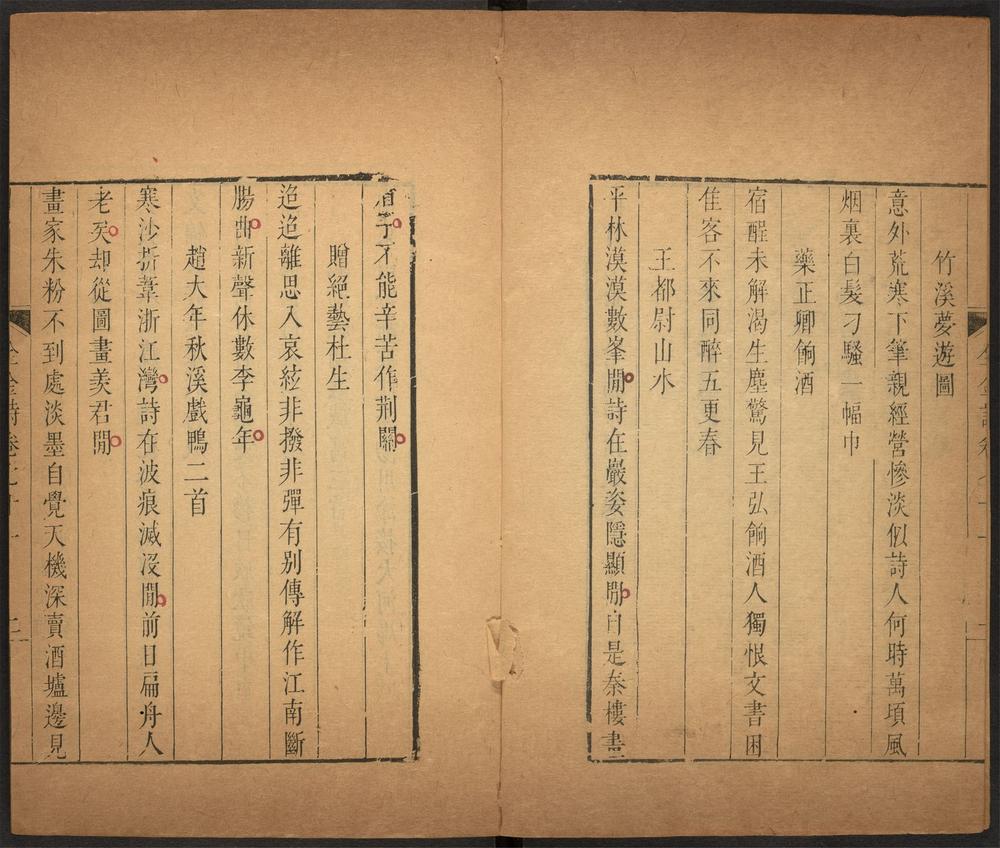 竹溪夢遊圖
意外荒寒下筆親經營慘淡似詩人何時萬頃風
烟裏白髮刁騷一幅巾
藥正卿餉酒
宿酲未解渴生塵驚見王弘餉酒人獨恨文書困
佳客不來同醉五更春
王都尉山水
平林漠漠數峯閒詩在巖姿隱顯閒自是秦樓畫
眉手不能辛苦作荆關
贈絕藝杜生
迢迢離思入哀絃非撥非彈有别傳解作江南斷
腸曲新聲休數李龜年
趙大年秋溪戲鴨二首
寒沙折葦浙江灣詩在波痕滅沒閒前日扁舟人
老矣却從圖畫羡君閒
畫家朱粉不到處淡墨自覺天機深賣酒壚邊見
全金詩卷